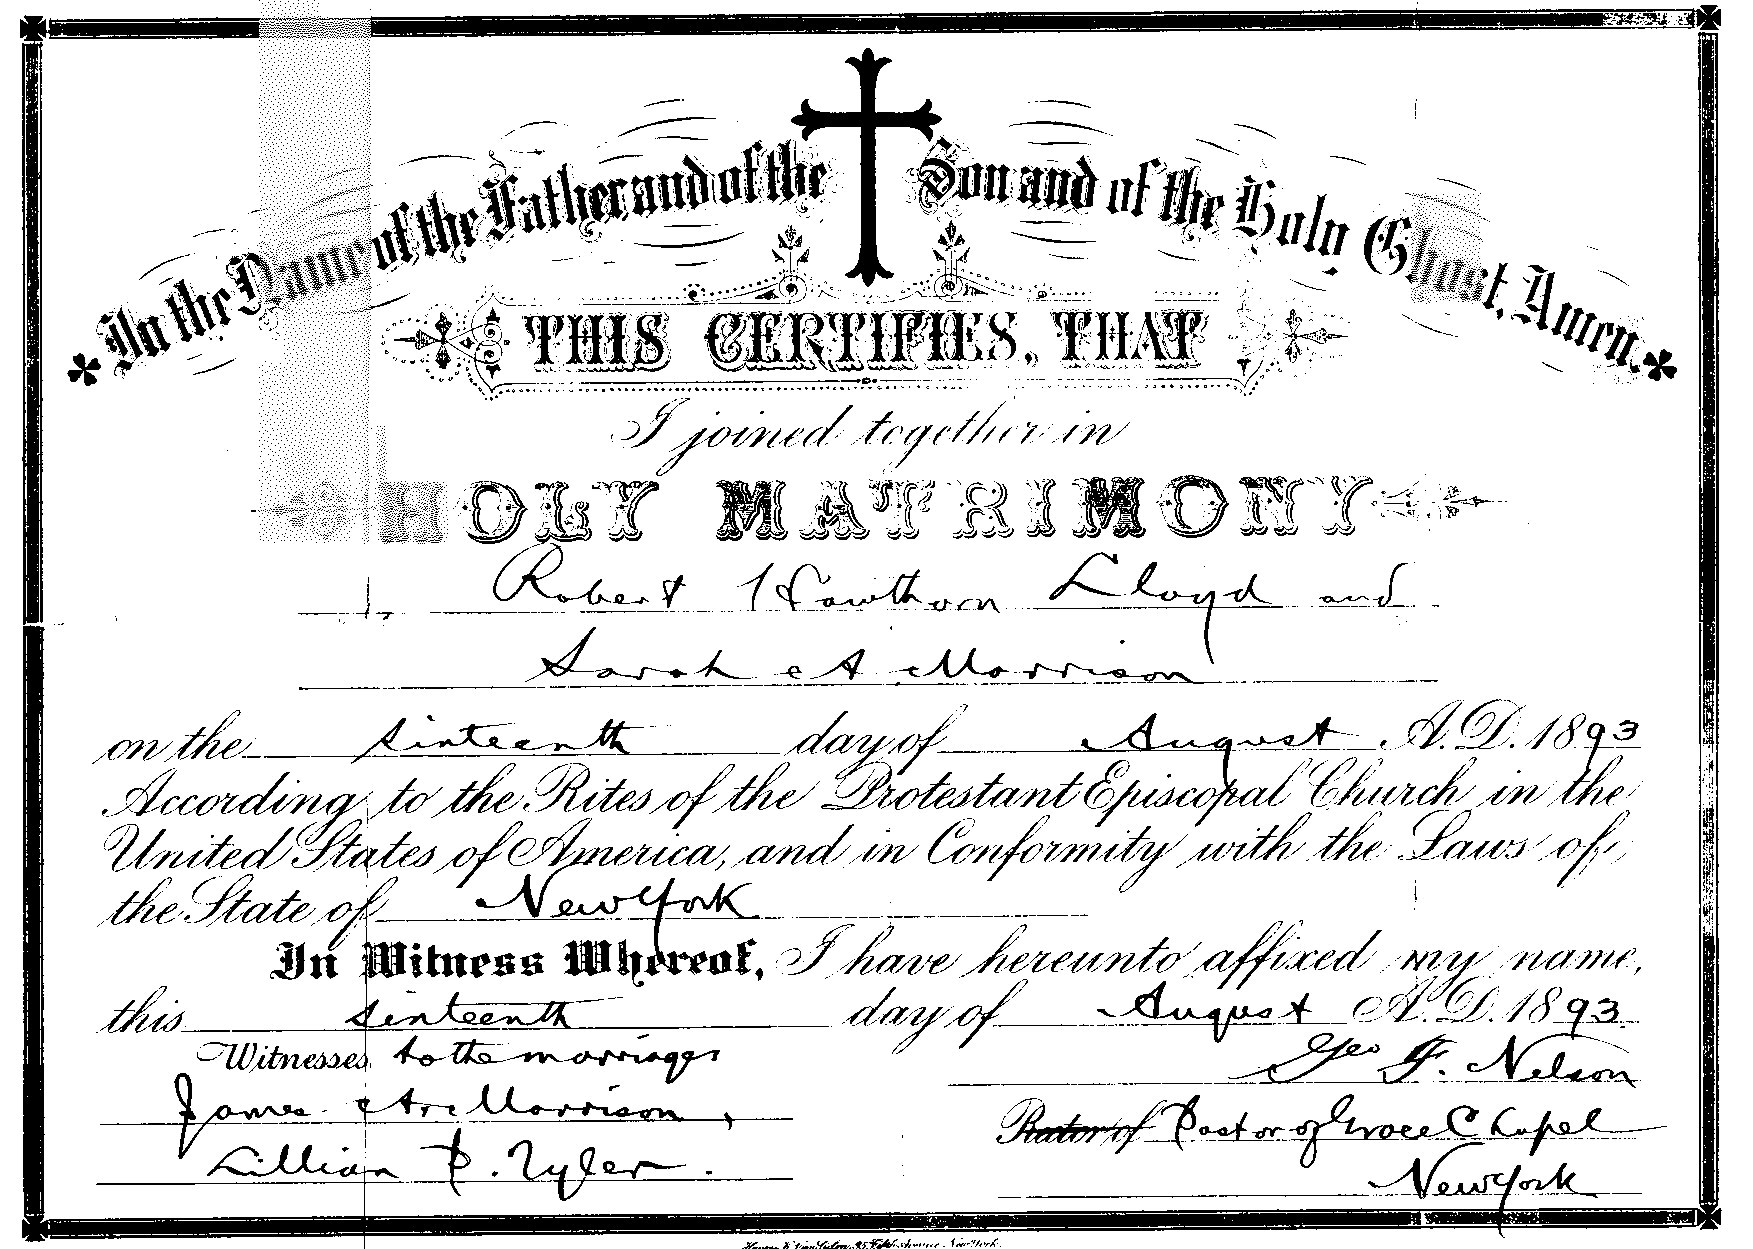 In the Name of the Father and of the Son and of the Holy Ghost, Amen.
THIS CERTIFIES, THAT
I joined together in
HOLY MATRIMONY
Robert Hawthorn Lloyd and
Sarah A Morrison
on the sixteenth day of August A.D. 1893
According to the Rites of the Protestant Episcopal Church in the
United States of America, and in Conformity with the Laws of
the State of New York
In Witness Whereof, I have hereunto affixed my name,
this sixteenth day of August A.D. 1893
Witnesses to the marriage
Geo F. Nelson
James Morrison,
Rector of Pastor of Grace Chapel
Lillian P. Tyler.
New York
Fifth Avenue New York